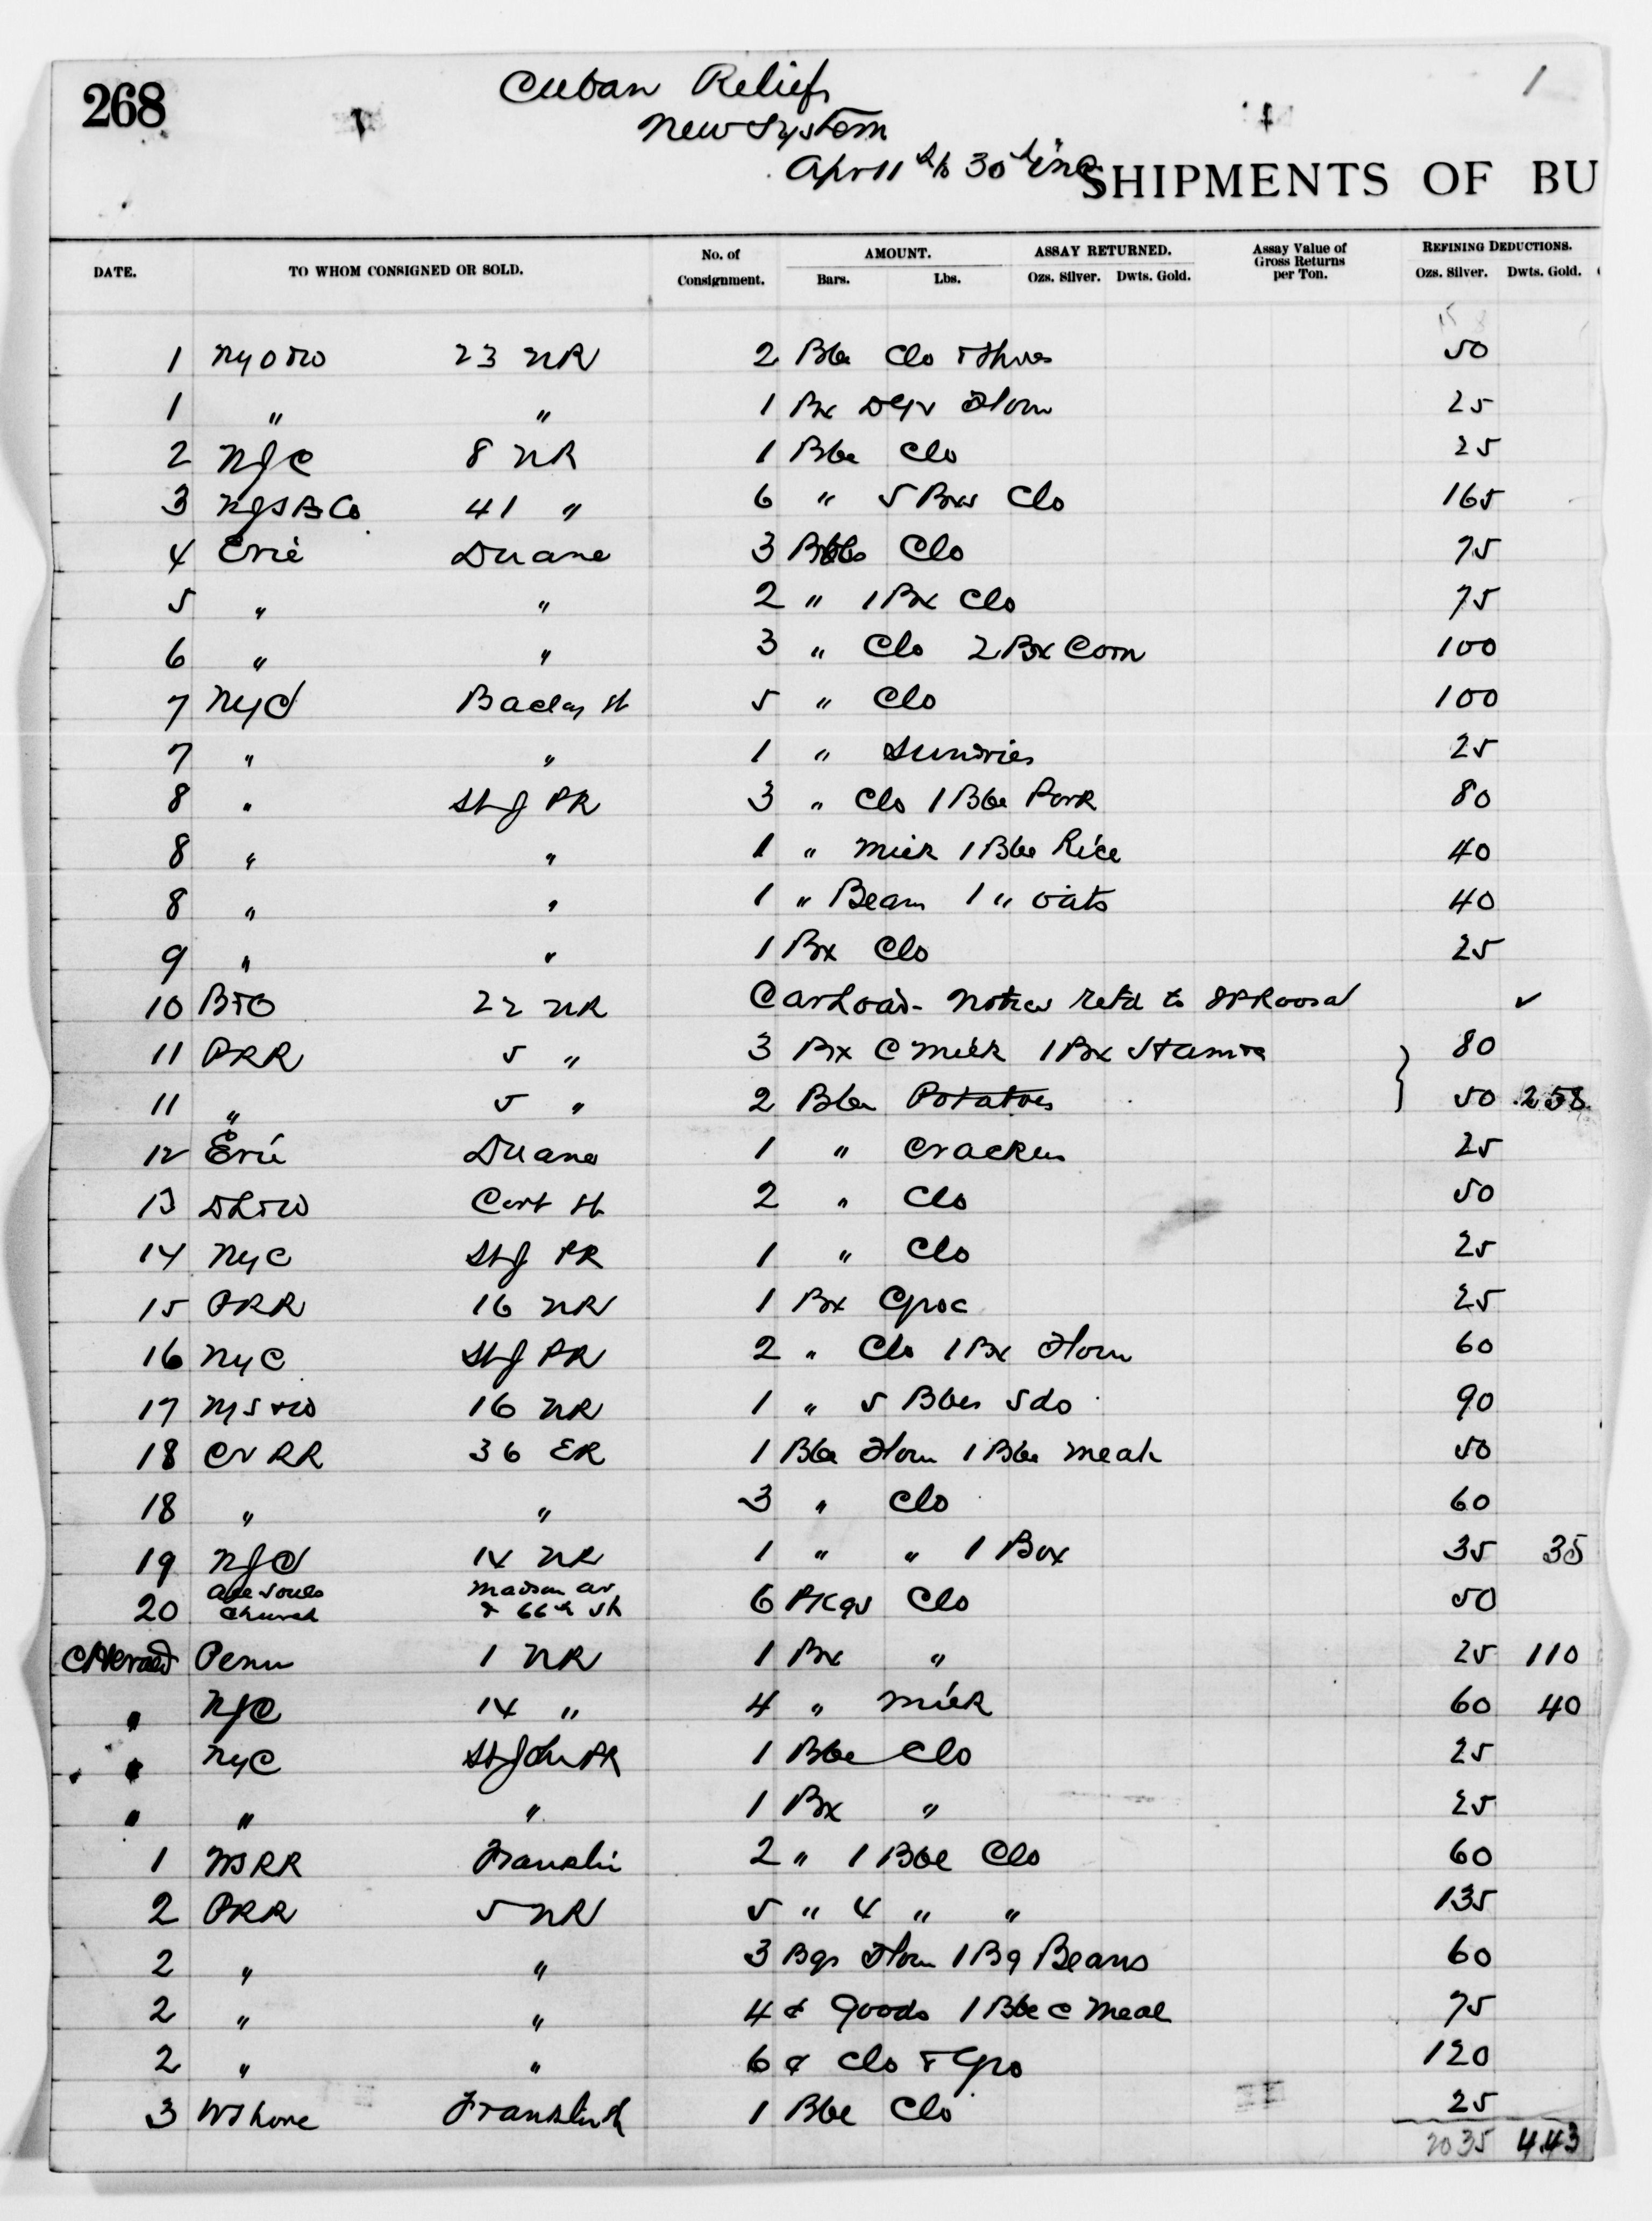 268
Cuban Relief
New System
Apr 11th to 30th inc
1
SHIPMENTS OF BU
DATE. TO WHOM CONSIGNED OR SOLD. No. of Consignment. AMOUNT. Bars. Lbs. ASSAY RETURNED. Ozs. Silver. Dwts. Gold. Assay Value of Gross Returns per Ton. REFINING DEDUCTIONS. Ozs. Silver. Dwts. Gold.
1 NYO&W 23 NR 2 Bbls Clo & Shoes 50
1 " " 1 Bx Flour 25
2 NJC 8 NR 1 Bbl Clo 25
3 NJSB Co 41 " 6 " 5 Bxs Clo 165
4 Erie Duane 3 Bbls Clo 75
5 " " 2 " 1 Bx Clo 75
6 " " 3 " Clo 2 Bx Corn 100
7 NYC Baclay St 5 " Clo 100
7 " " 1 " Sundries 25
8 " St J PK 3 " Clo 1 Bbl Pork 80
8 " " 1 " Milk 1 Bbl Rice 40
8 " " 1 " Beans 1 " Oats 40
9 " " 1 Bx Clo 25
10 B&O 22 NR Carload - Notice retd to ✓
11 PRR 5 " 3 Bx C Milk 1 Bx 80
11 " 5 " 2 Bbls Potatoes 50 2 58
12 Erie Duane 1 " Crackers 25
13 DL&W Cort St 2 " Clo 50
14 NYC St J PK 1 " Clo 25
15 PRR 16 NR 1 Bx Groc 25
16 NYC St J PK 2 " Clo 1 Bx Flour 60
17 NYS&W 16 NR 1 " 5 Bbls Sdo 90
18 CV RR 36 ER 1 Bbl Flour 1 Bbl Meal 50
18 " " 3 " Clo 60
19 NJC 14 NR 1 " " 1 Box 35 35
20 All Souls Church Madison av & 66th St 6 Pkgs Clo 50
C Herald Penn 1 NR 1 Bx " 25 110
" NJC 14 " 4 " Milk 60 40
" NYC St John PK 1 Bbl Clo 25
" " " 1 Bx " 25
1 WSRR Franklin 2 " 1 Bbl Clo 60
2 PRR 5 NR 5 " 4 " " 135
2 " " 3 Bgs Flour 1 Bg Beans 60
2 " " 4 c Goods 1 Bbl C Meal 75
2 " " 6 c Clo & Gro 120
3 W Shore Franklin St 1 Bbl Clo 25
2035 443